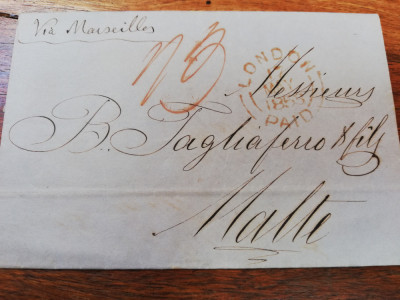 Via Marseilles
LONDON
PAID
Messieurs
B. Tagliaferro & fils
Malte